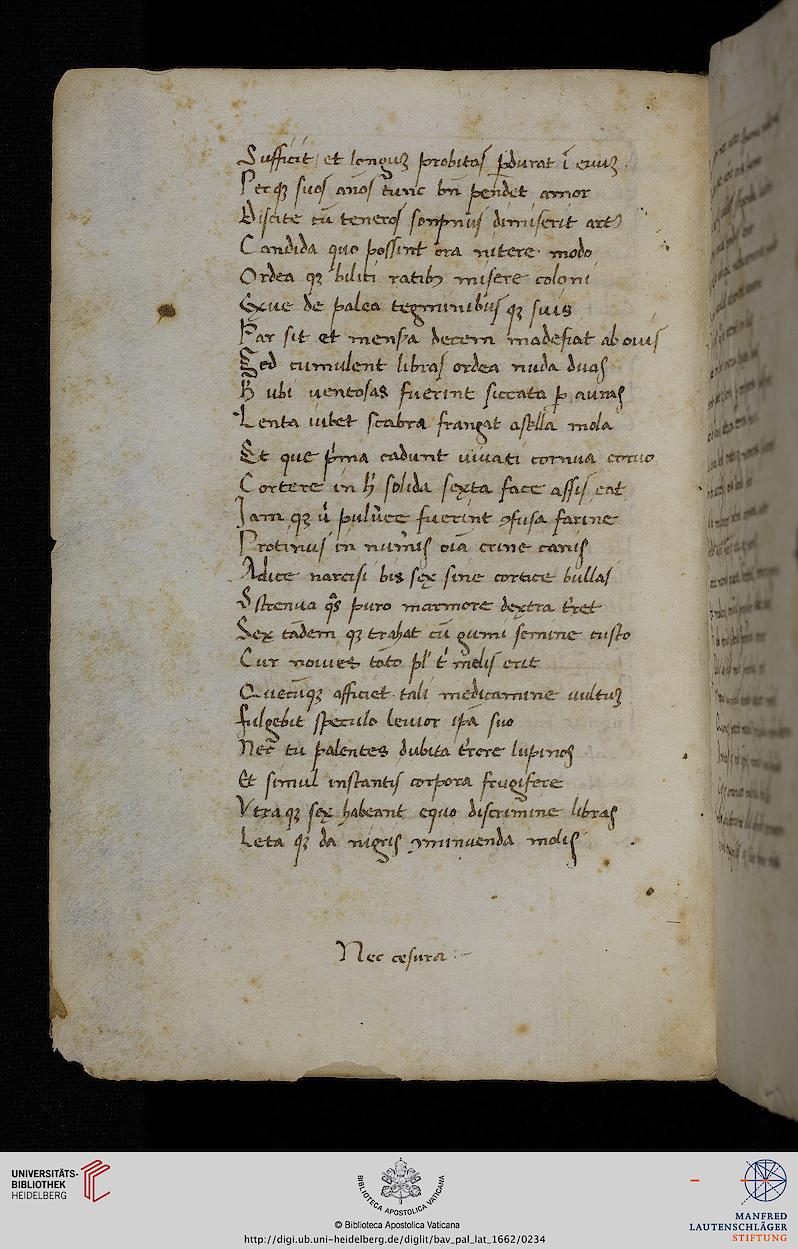 Sufficit et longuʒ probitas ꝑdurat ĩ euuʒ
Perqʒ suos años tunc bñ pendet amor
Discite cũ teneros sonpnus dimiserit art
Candida quo possint ora nitere modo
Ordea qʒ biliti ratibʒ misere coloni
Exue de palea tegminibus qʒ suis
Par sit et mensa decem madefiat ab ouis
Sed cumulent libras ordea nuda duas
ubi uentosas fuerint siccata ꝑ auras
Lenta iubet scabra frangat asella mola
Et que pͥma cadunt uiuati cornua ceruo
Cortere in solida sexta face assis eat
Jam qʒ puluere fuerint ꝯfusa farine
Protinus in oĩa crine canis
Adice narcisi bis sex sine cortice bullas
Strenua puro marmore dextra
Sex tãdem qʒ trahat cũ gumi semine tusto
Cur noues mellis erit
Quecũqʒ afficiet tali medicamine uultuʒ
fulgebit speculo leuior ipã suo
Nec tu palentes dubita lupinos
Et simul instantis corpora frugifere
Vtraqʒ sex habeant equo discrimine libras
Leta qʒ da nigris minuenda molis
Nec cesura
UNIVERSITÄTS-
BIBLIOTHEK
HEIDELBERG
BIBLIOTECA APOSTOLICA VATICANA
© Biblioteca Apostolica Vaticana
http://digi.ub.uni-heidelberg.de/diglit/bav_pal_lat_1662/0234
MANFRED
LAUTENSCHLÄGER
STIFTUNG